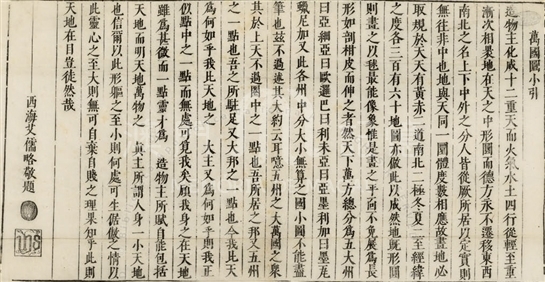 萬國圖小引
造物主化成十二重天而火氣水土四行從輕至重
漸次相裹地在天之中形圓而德方永不遷移東西
南北之名上下中外之分人皆從厥所居以定實則
無往非中也地與天同一圜體度數相應故畫地必
取規於天天有黃赤二道南北二極冬夏二至經緯
之度各三百有六十地圖亦倣此以成然地既形圓
則畫之以毬最能像象惟是畫之乎面不免展為長
形如剖柑皮而伸之者然天下萬方總分為五大州
曰亞細亞曰歐邏巴曰利未亞曰亞墨利加曰墨瓦
蠟尼加又此各州中分大小無算之國小圖不能盡
筆也茲不過述其大約云耳噫五州之大萬國之眾
其於上天不過圜中之一點也吾所居之邦又五州
之一點也吾之所駐足又大邦之一點也今我此天
為何如乎我此天地之 大主又為何如乎則我正
似點中之一點而無處可覓我矣顧我身之在天地
雖為甚微而一點靈才為 造物主所賦自能包括
天地而明天地萬物之 真主所謂人身一小天地
也信爾以此形軀之至小則何處可生倨傲之情以
此靈心之至大則無可自棄自賤之理果知乎此則
天地在目豈徒然哉
西海艾儒略敬題